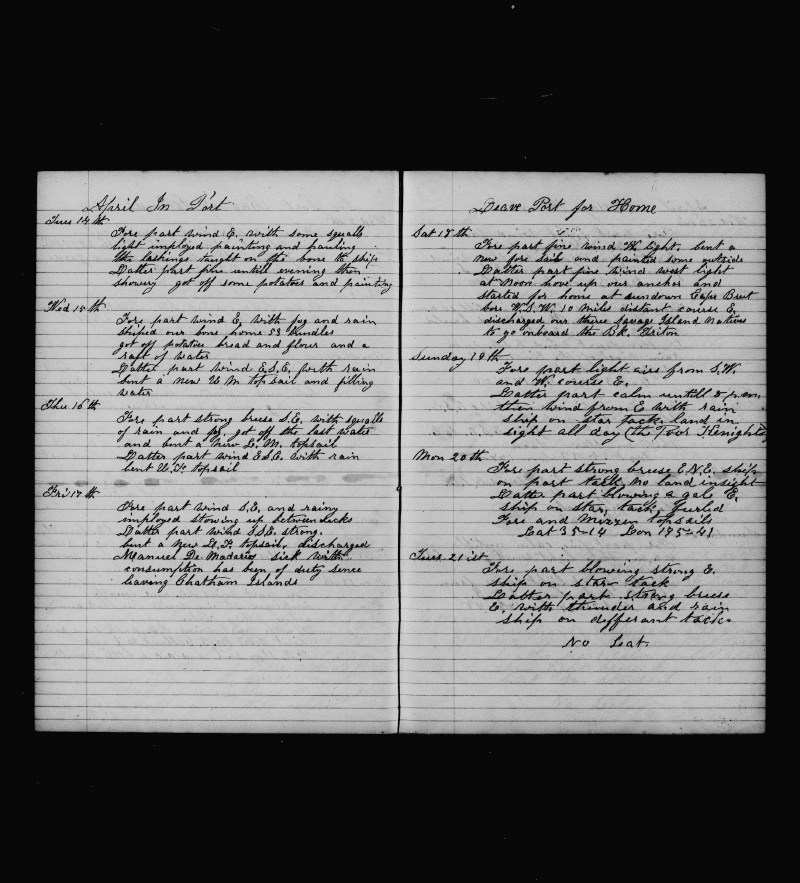 April In Port
Tues 14th
Fore part wind E, with some squalls
light imployed painting and
the lashings taught on the bone to ship
Latter part fine untill evening then
showery got off some potatoes and painting
Wed 15th
Fore part wind E, with fog and rain
shiped our bone home 53 bundles
got off potatoes bread and flour and a
raft of water
Latter part wind E.S.E. with rain
bent a new U M topsail and filling
water
Thu 16th
Fore part strong breese S.E. with squalls
of rain and got off the last water
and bent a new L. M. topsail
Latter part wind E.S.E. with rain
bent U. F. topsail
Fri 17th
Fore part wind S.E. and rainy
imployed stowing up between decks
Latter part wind S.S.E. strong.
bent a new L. F. topsail, discharged
Manuel De sick with
consumption has been of duty sence
leaving Chatham Islands
Leave Port for Home
Sat 18th
Fore part fine wind W. light, bent a
new fore sail and painted some outside
Latter part fine wind west light
at Noon hove up our anchor and
started for home at sundown Cape Bret
bore W.S.W. 10 miles distant course E,
discharged our three Savage Island Natives
to go onboard the Bk. Triton
Sunday 19th
Fore part light airs from S.W.
and W. course E.
Latter part calm untill 8 p.m,
then wind from E with rain
ship on star tack, land in
sight all day (the Poor Knights)
Mon 20th
Fore part strong breese E.N.E. ship
on part tack, No land insight
Latter part blowing a gale E.
ship on star, tack, furled
Fore and Mizzen topsails
Lat 35-14 Lon 175-41
Tues 21ist
Fore part blowing strong E.
ship on star tack
Latter part strong breese
E, with thunder and rain
ship on differant tacks
No Lat.